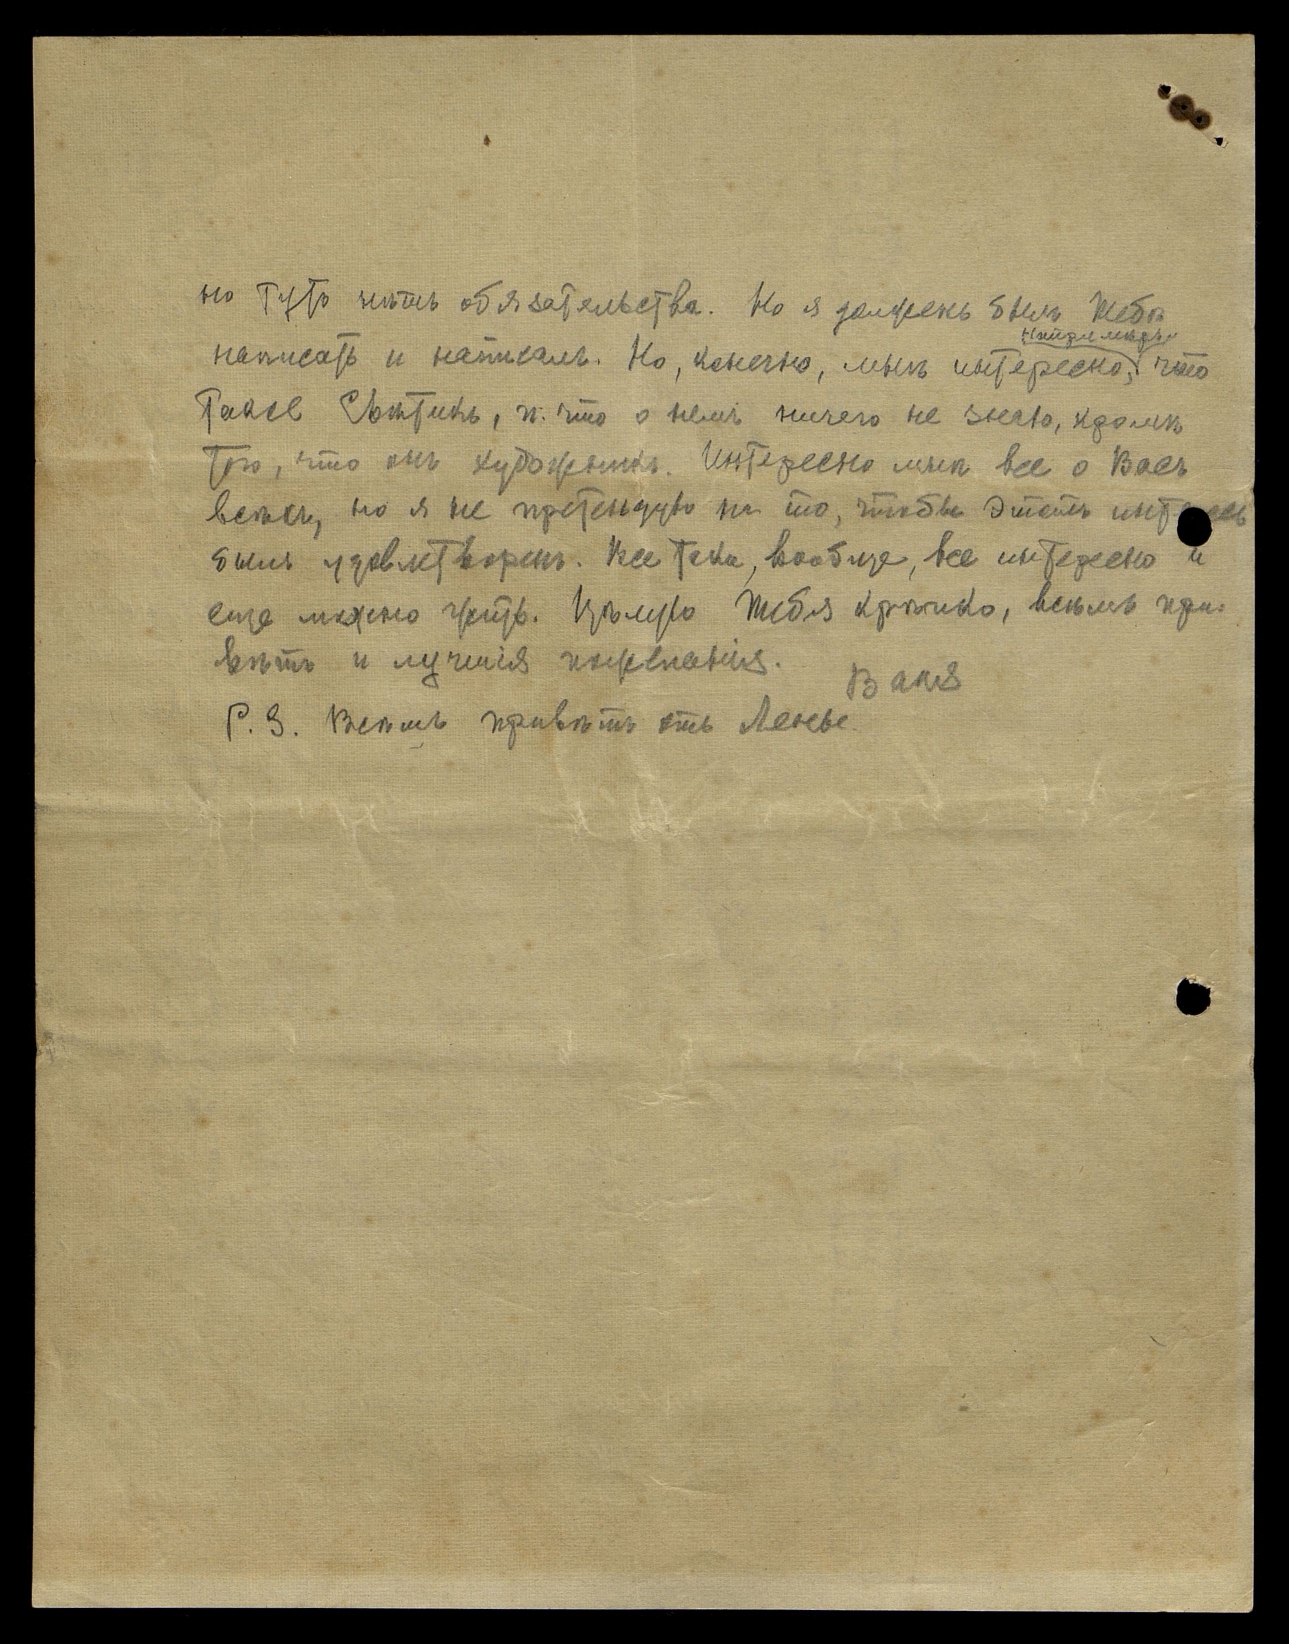 но тутъ нѣтъ обязательства. Но я долженъ былъ Тебѣ
написать и написалъ. Но, конечно, мнѣ интересно, напримѣръ, что
такое Сѣтикъ, п. что о немъ ничего не знаю, кромѣ
того, что онъ художникъ. Интересно мнѣ все о Васъ
всѣхъ, но я не претендую на то, чтобы этотъ интересъ
былъ удовлетворенъ. Все таки, вообще, все интересно и
еще можно жить. Цѣлую Тебя крѣпко, всѣмъ при-
вѣтъ и лучшія пожеланія.
Ваня
P.S. Всѣмъ привѣтъ отъ Лены.